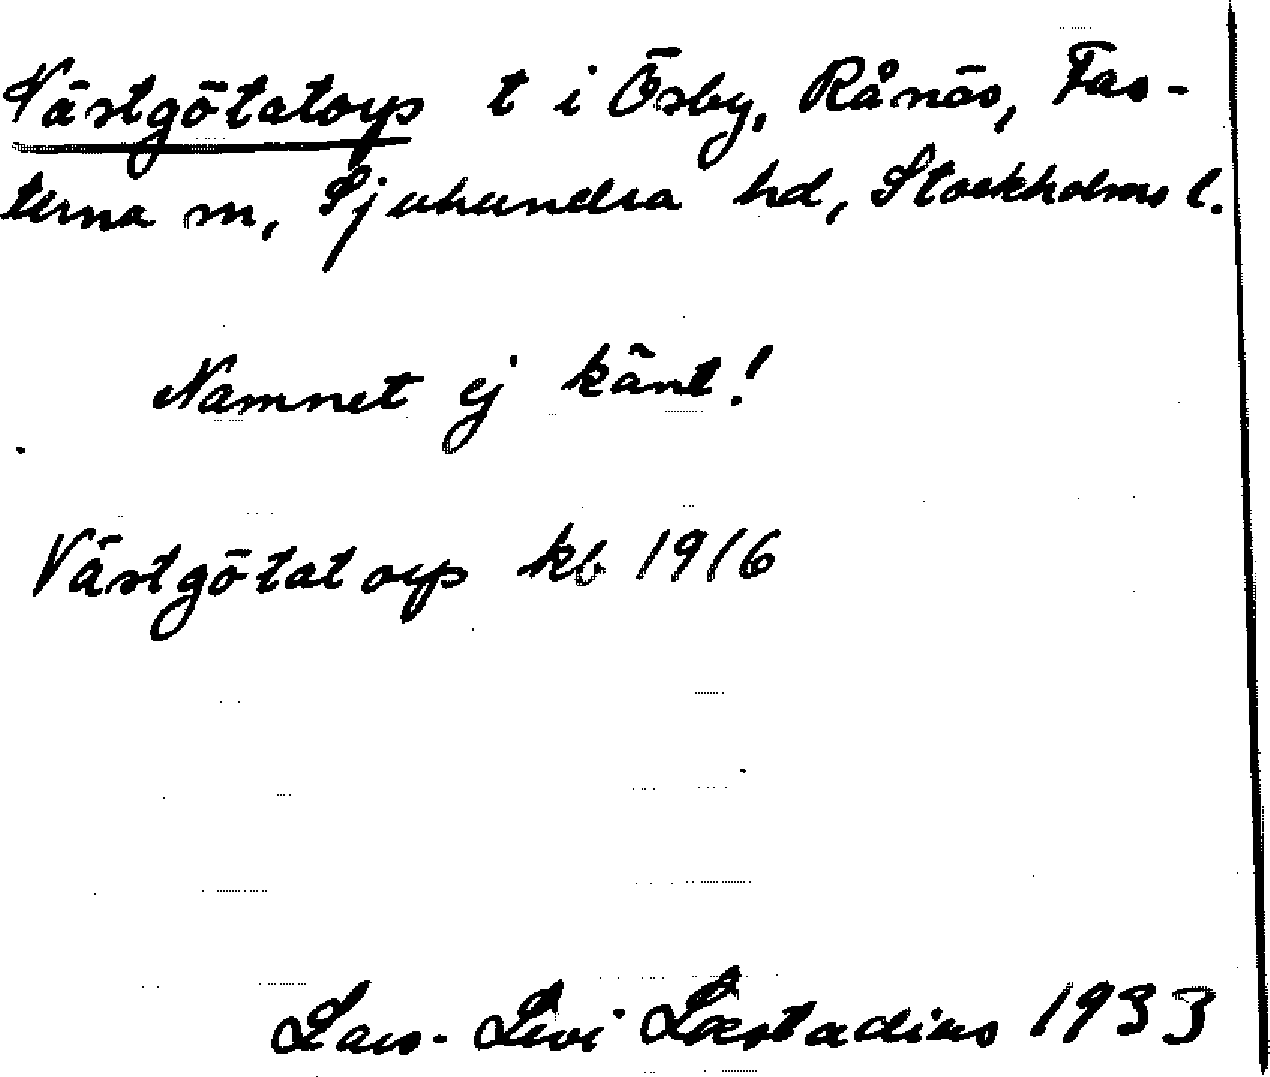 Västgötatorp t i Ösby, Rånäs, Fas-
terna sn, Sjuhundra hd, Stockholms l.
Namnet ej känt!
Västgötatorp kb 1916
Lars-Levi Læstadius 1933